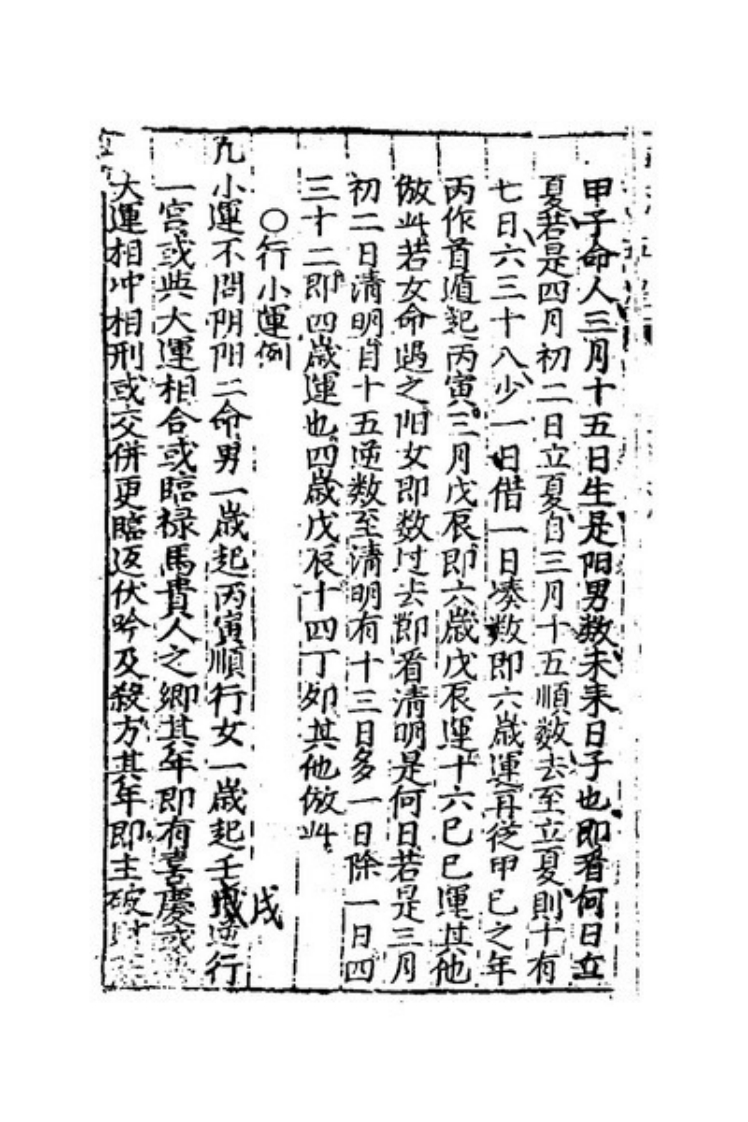 甲子命人三月十五日生是阳男数未来日子也即看何日立
夏若是四月初二日立夏自三月十五順数去至立夏則十有
七日六三十八少一日借一日凑数即六歲運再從甲己之年
丙作首遁起丙寅三月戊辰即六歲戊辰運十六己巳運其他
倣此若女命遇之阳女即数过去節看清明是何日若是三月
初二日清明自十五逆数至清明有十三日多一日除一日四
三十二即四歲運也四歲戊辰十四丁卯其他倣此
○行小運例
凡小運不問阴阳二命男一歲起丙寅順行女一歲起壬逆行
戌
一宮或與大運相合或臨禄馬貴人之鄉其年即有喜慶或
大運相冲相刑或交併更臨返伏吟及殺方其年即主破财